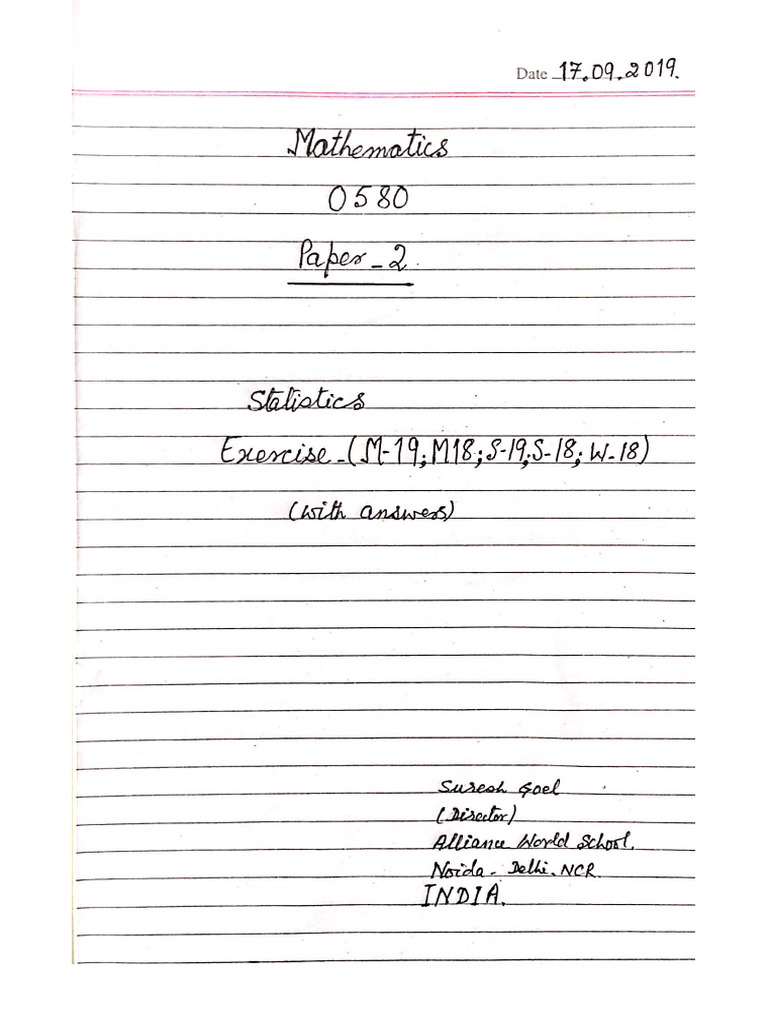 Date 17.09.2019.
Mathematics
0580
Paper-2.
Statistics
Exercise-(M-19; M18; S-19; S-18; W-18)
(with answers)
Suresh Goel
(Director)
Alliance World School.
Noida - Delhi. NCR
INDIA.